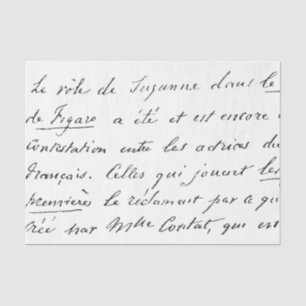 Le rôle de Suzanne dans le
de Figaro a été et est encore
contestation entre les actrices du
français. Celles qui jouent les
premières le réclament par ce qu
créé par Mlle Contat, qui est